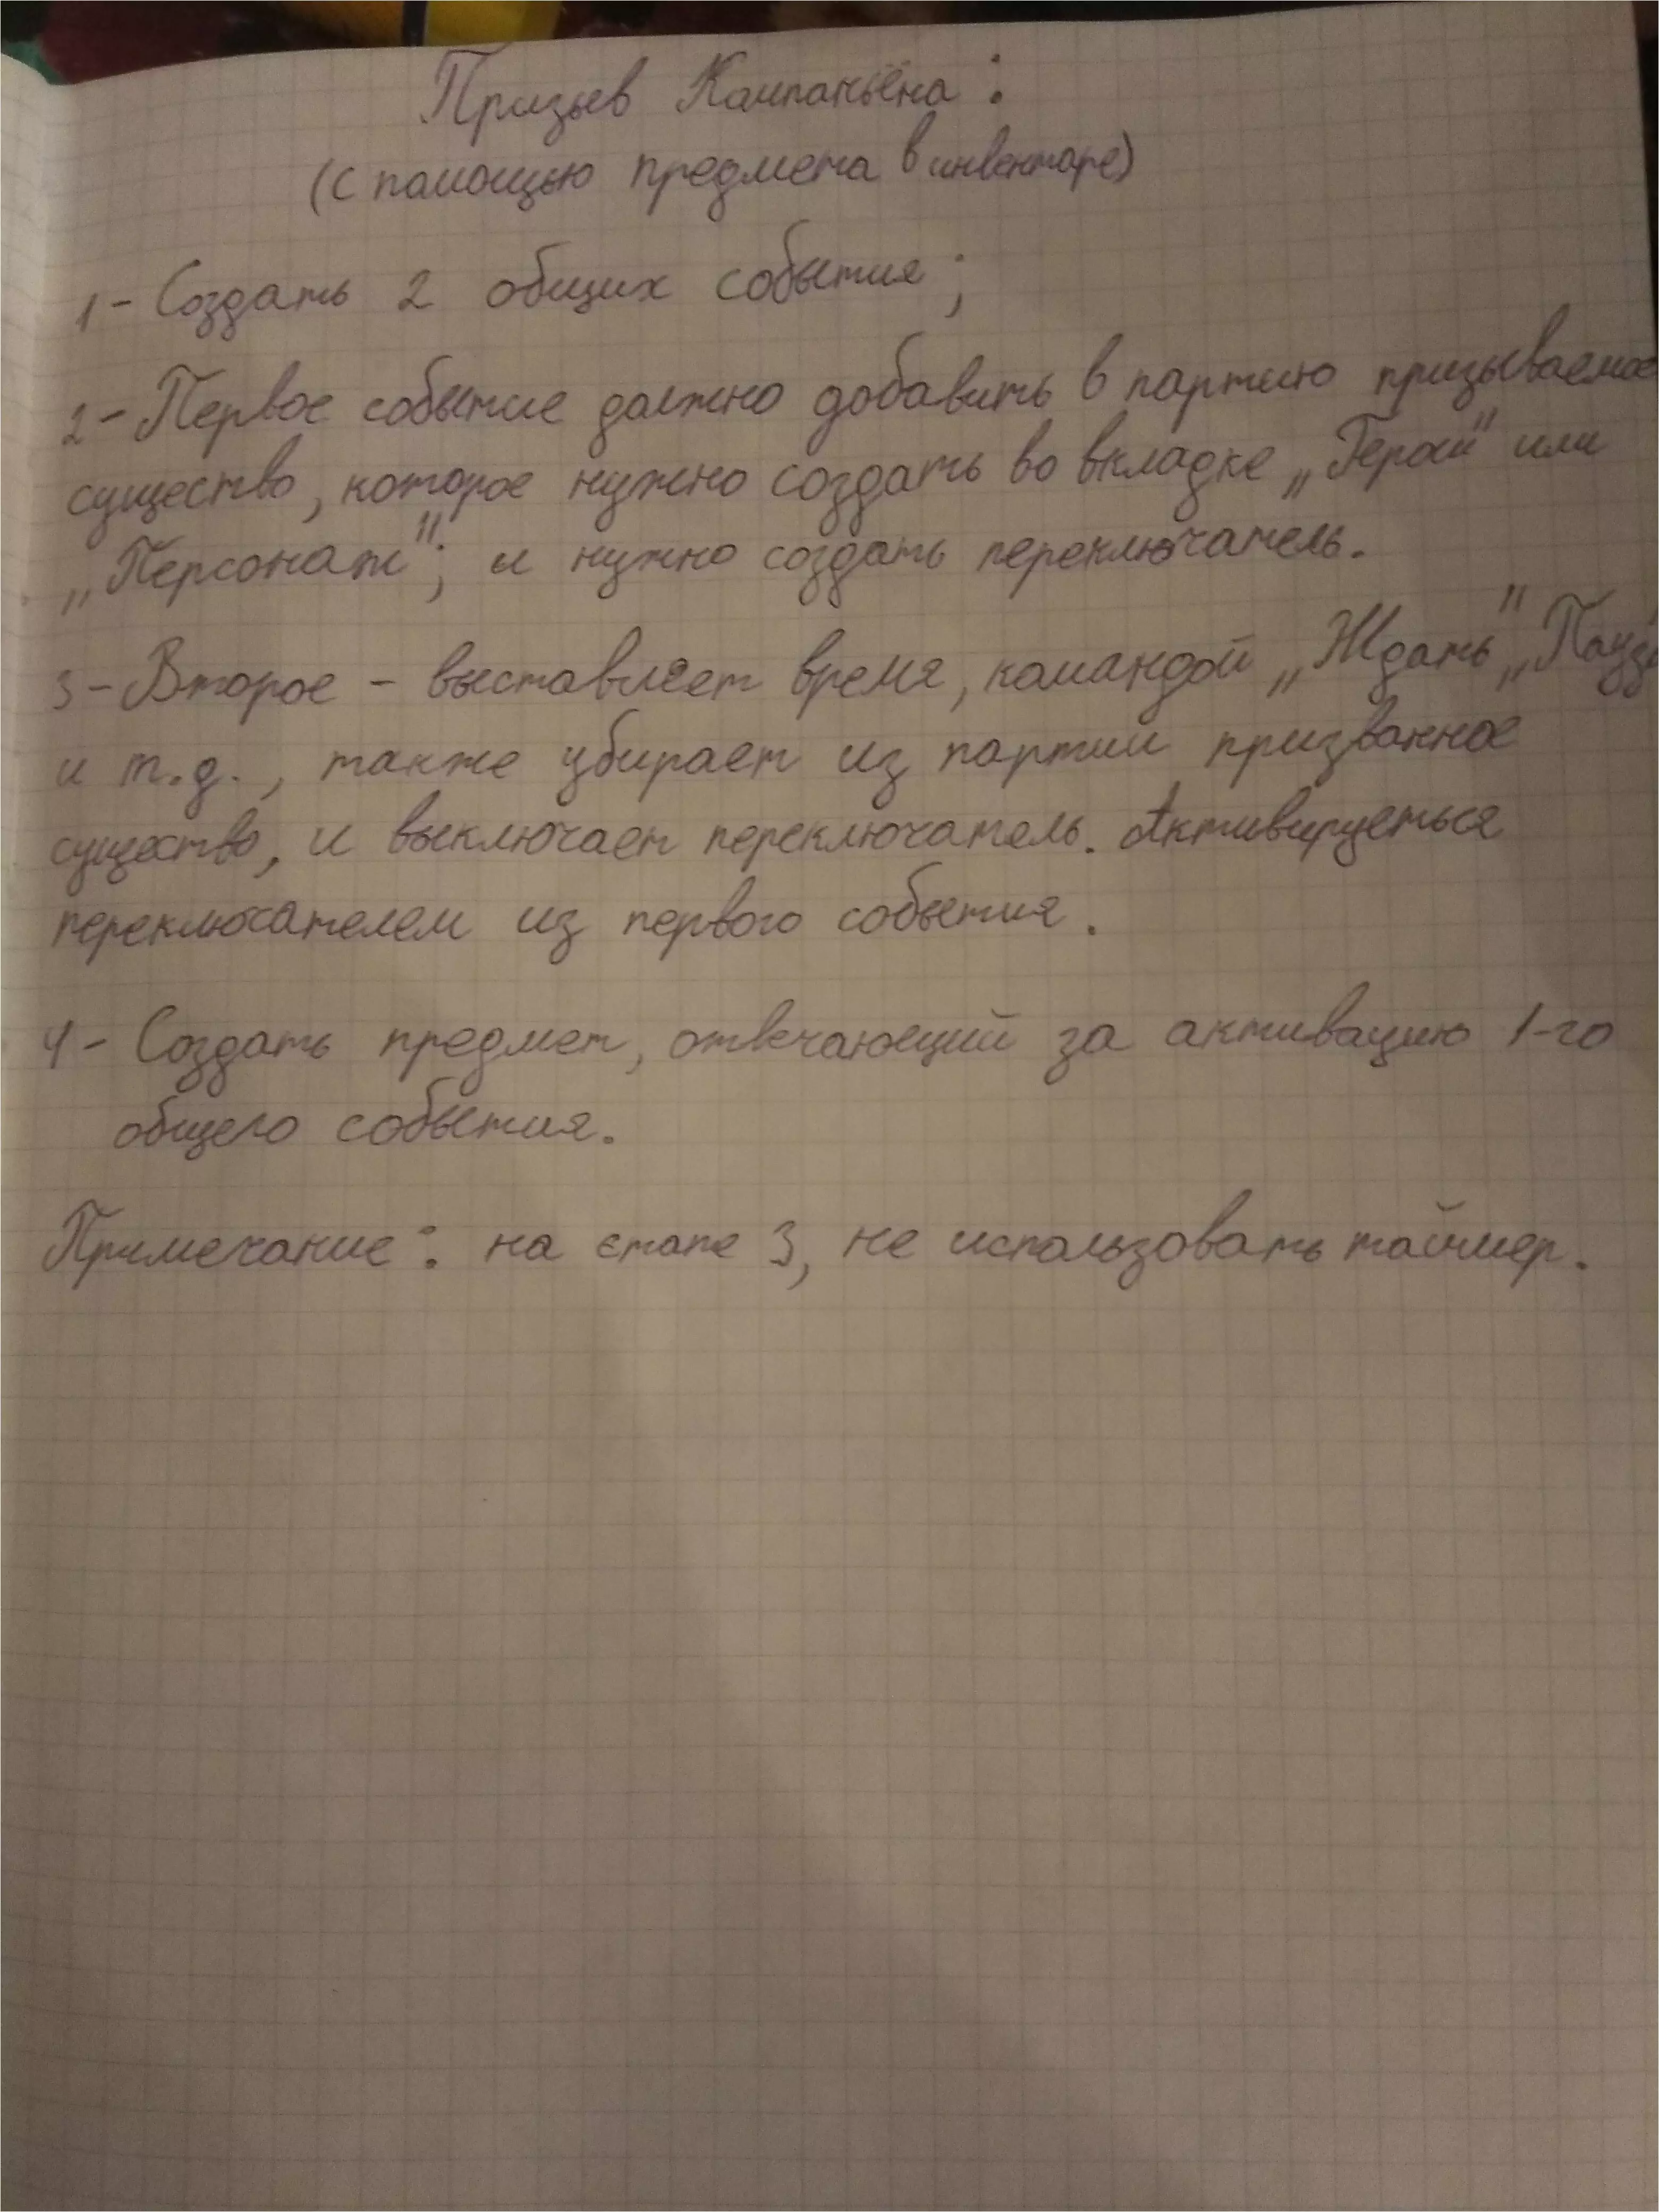 Призыв Компаньёна:
(с помощью предмета в инвентаре)
1 - Создать 2 общих события;
2 - Первое событие должно добавить в партию призываемое
существо, которое нужно создать во вкладке „Герои" или
„Персонаж"; и нужно создать переключатель.
3 - Второе - выставляет время, командой „Ждать", „Пауза
и т.д., также убирает из партии призванное
существо, и выключает переключатель. Активируеться
переключателем из первого события.
4 - Создать предмет, отвечающий за активацию 1-го
общего события.
Примечание: на єтапе 3, не использовать таймер.